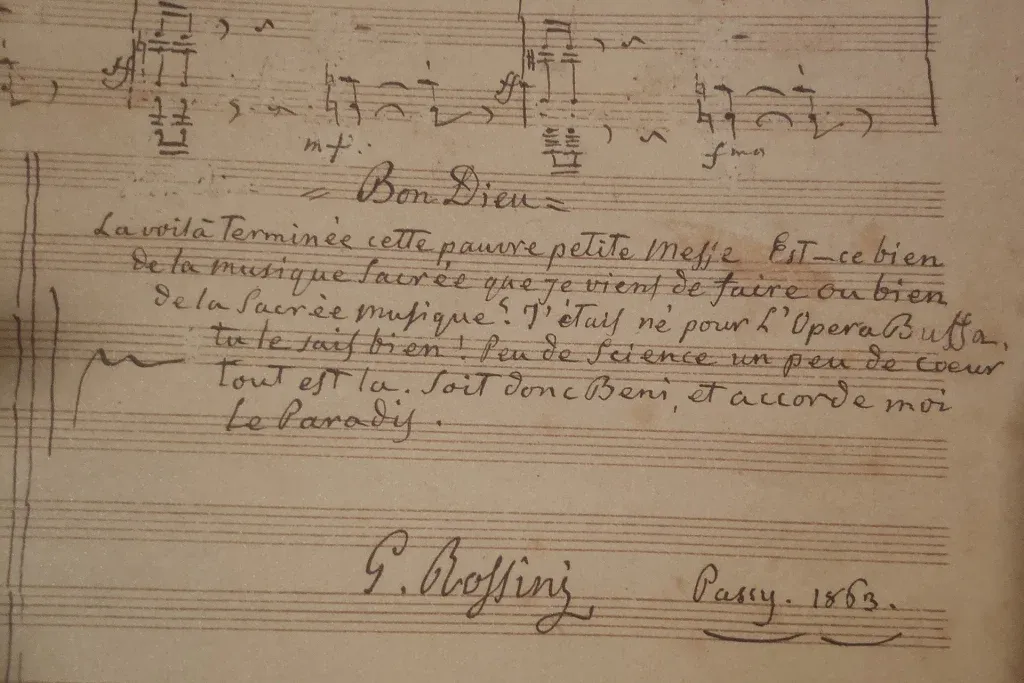 ff ff
mf. fmo
= Bon Dieu =
La voilà Terminée cette pauvre petite Messe Est-ce bien
de la musique Sacrée que je viens de faire ou bien
de la Sacrée musique? J'étais né pour L'Opera Buffa,
tu le sais bien! Peu de Science un peu de coeur
tout est la. Soit donc Beni, et accorde moi
Le Paradis.
G. Rossini Passy. 1863.